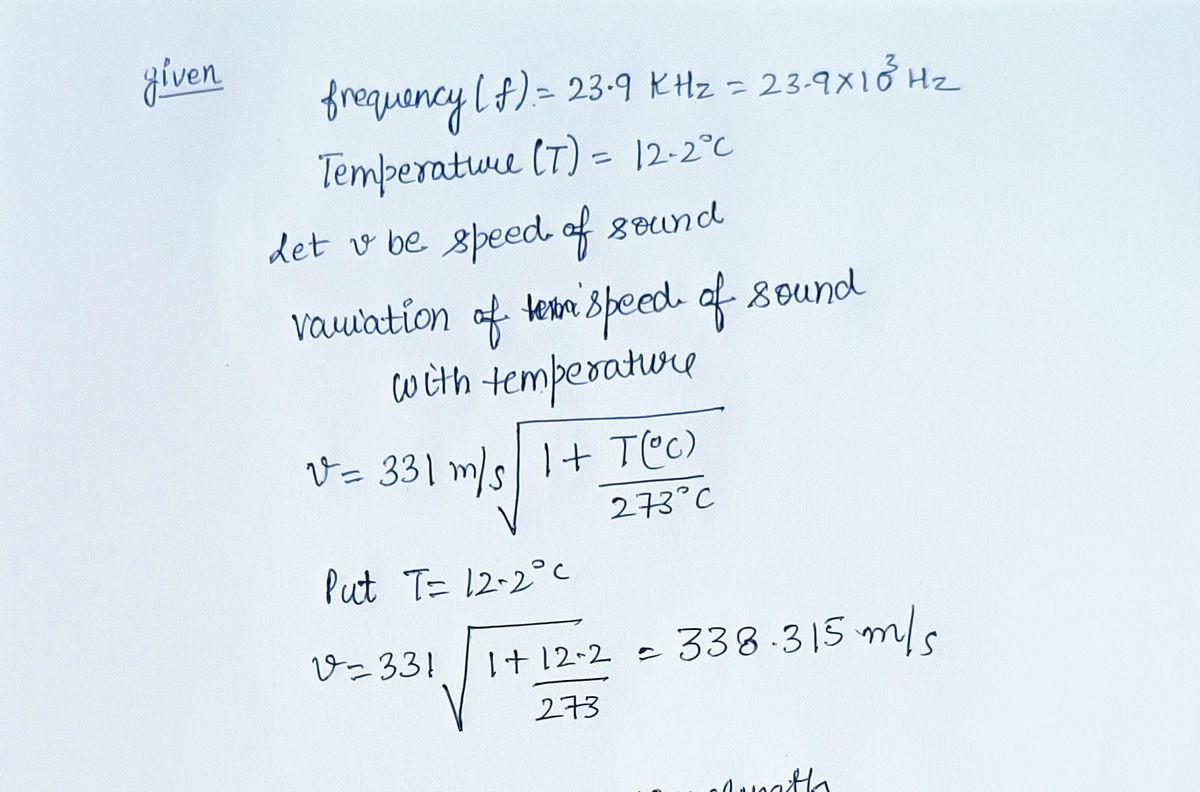 given
frequency (f) = 23.9 KHz = 23.9×10³ Hz
Temperature (T) = 12.2°C
Let v be speed of sound
variation of speed of sound
with temperature
v = 331 m/s √(1 + T(°C)/273°C)
Put T = 12.2°C
v = 331 √(1 + 12.2/273) = 338.315 m/s